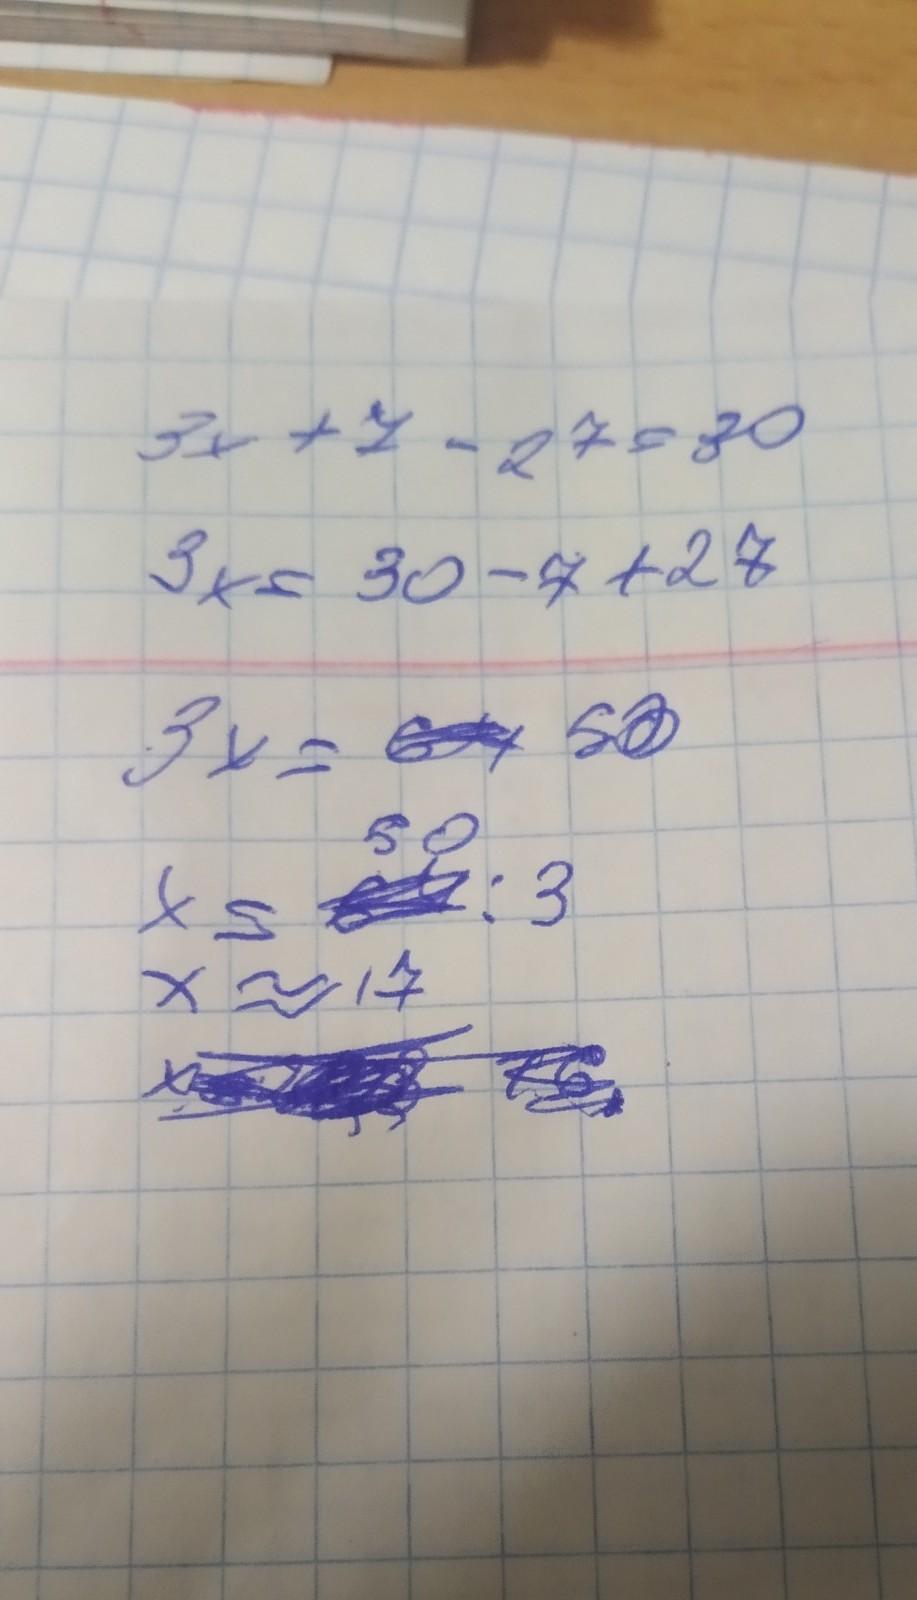 3x + 7 - 27 = 30
3x = 30 - 7 + 27
3x = 50
50
x = : 3
x ≈ 17
x